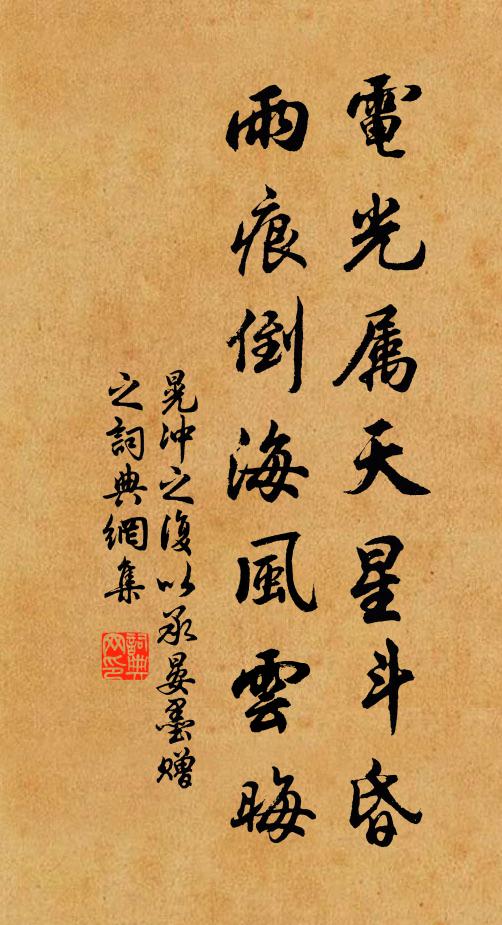 電光属天星斗昏
雨痕倒海風雲晦
晃冲之復以承晏墨贈
之詞典網集
詞典
网印